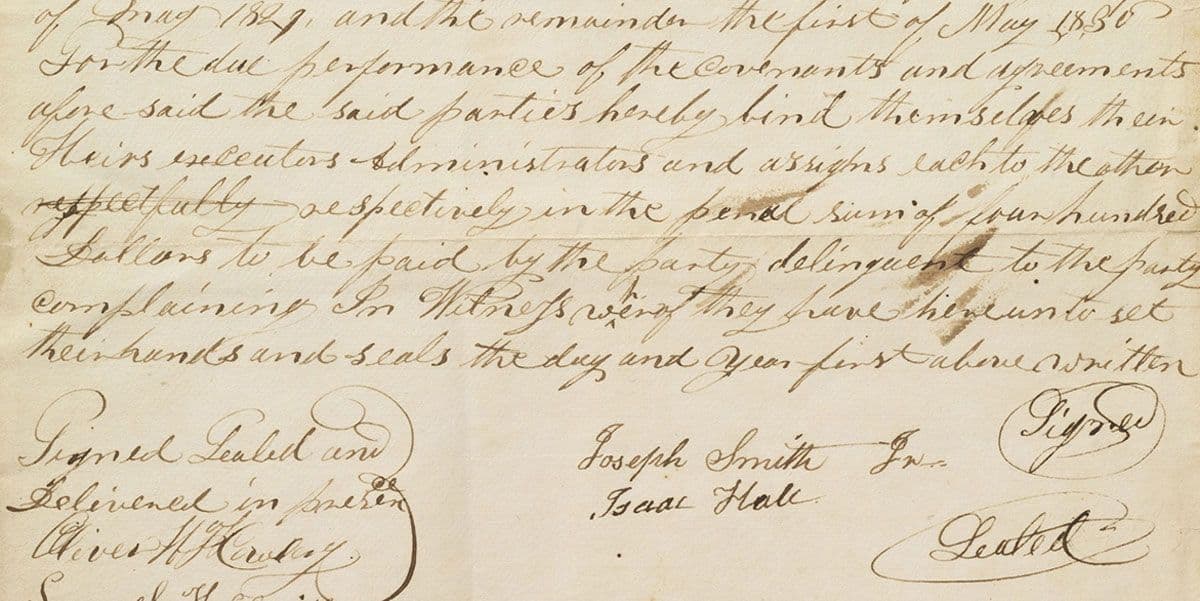 of May 1829, and the remainder the first of May 1830
For the due performance of the covenants and agreements
afore said the said parties hereby bind themselves their
Heirs executors Administrators and assigns each to the other
respectfully respectively in the penal sum of four hundred
Dollars to be paid by the party delinquent to the party
complaining In Witness wherof they have hereunto set
their hands and seals the day and year first above written
Signed Sealed and
Delivered in presence
Oliver H Cowdery
Joseph Smith Jr.
Isaac Hale
Signed
Sealed